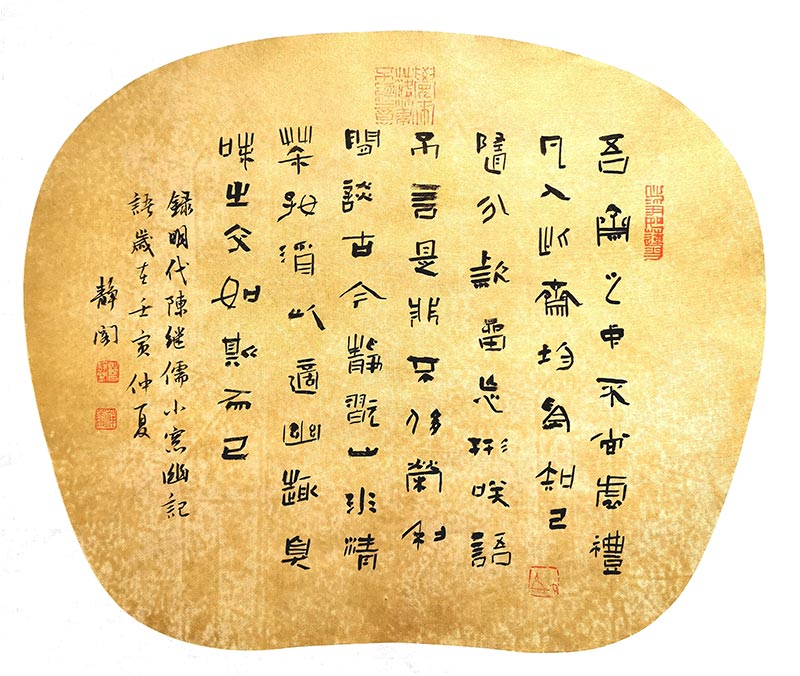 吾齋之中不尚虛禮
凡入此齋均為知己
隨分款留忘形咲語
不言是非不侈榮利
閒談古今靜翫山水清
茶好酒以適幽趣臭
味之交如斯而已
錄明代陳继儒小窓幽記
語歲在壬寅仲夏
靜閣